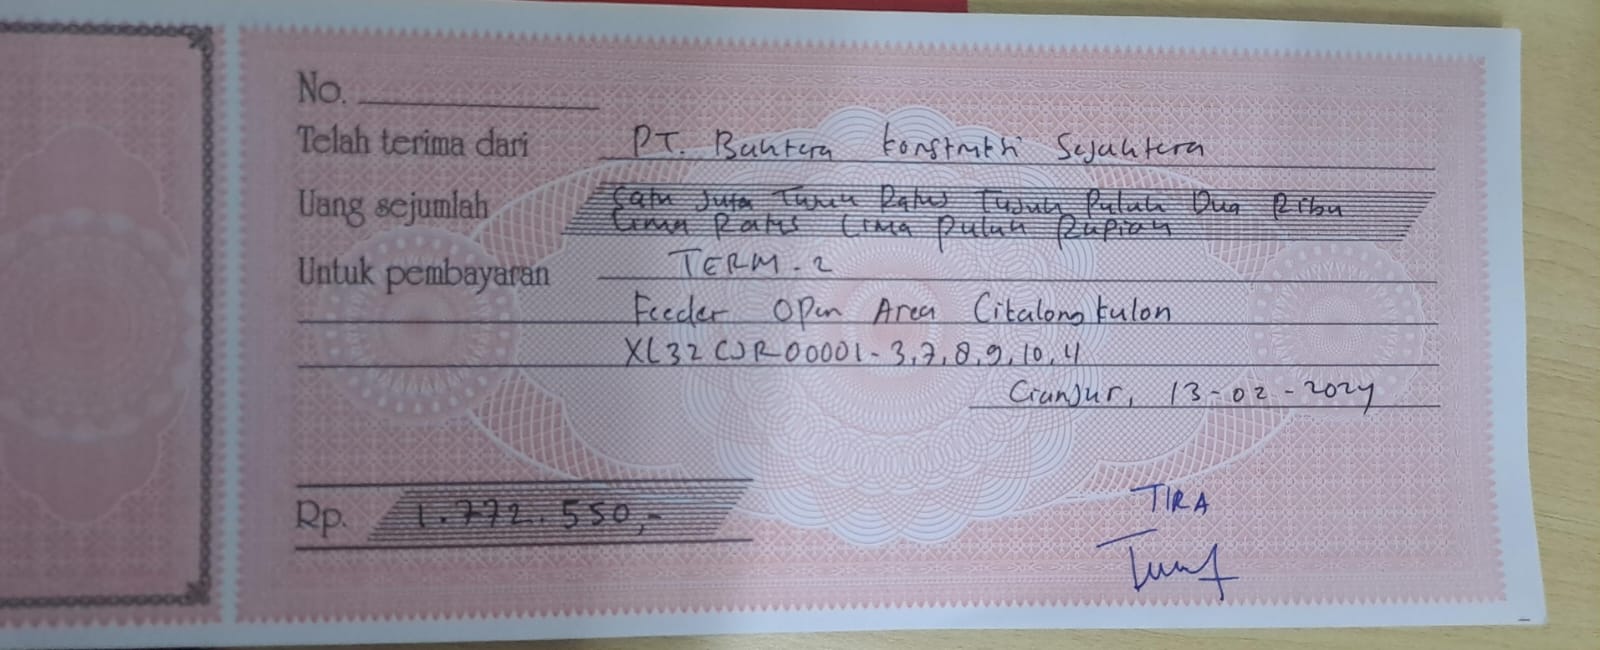 No.
Telah terima dari PT. Bahtera Konstruksi Sejahtera
Uang sejumlah Satu Juta Tujuh Ratus Tujuh Puluh Dua Ribu
Lima Ratus Lima Puluh Rupiah
Untuk pembayaran TERM-2
Feeder Open Area Cikalongkulon
XL32CJR00001-3,7,8,9,10,11
Cianjur, 13-02-2024
Rp. 1.772.550,-
TIRA